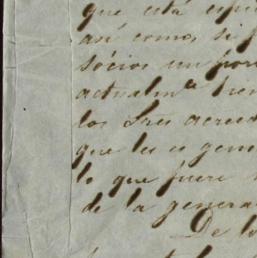 que está
así como si
socios un por
actualm.te
los Sres acreed
que les es gen
lo que fuere
de la genera
De lo